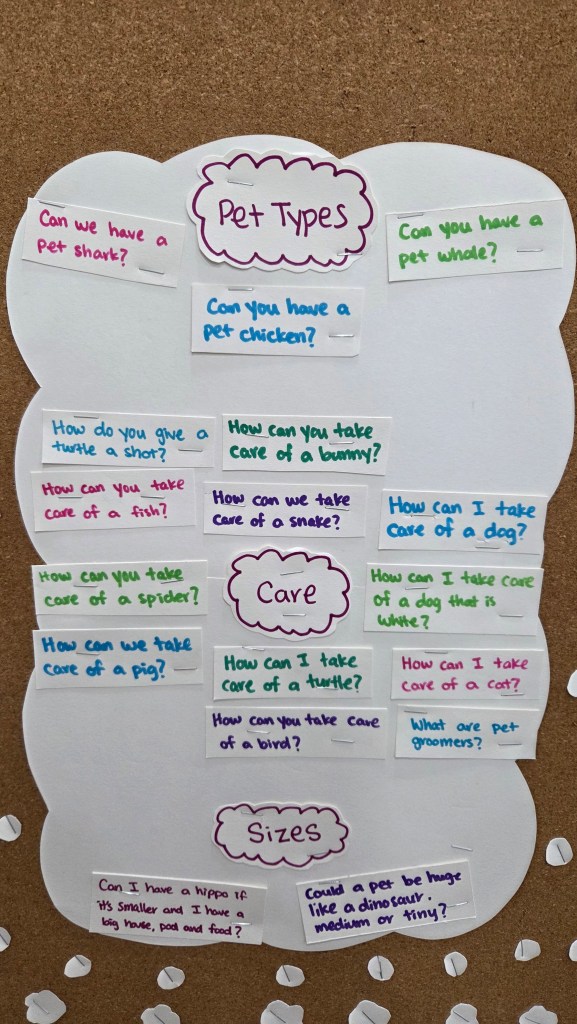 Pet Types
Can we have a
pet shark?
Can you have a
pet whale?
Can you have a
pet chicken?
How do you give a
turtle a shot?
How can you take
care of a bunny?
How can you take
care of a fish?
How can we take
care of a snake?
How can I take
care of a dog?
How can you take
care of a spider?
Care
How can I take care
of a dog that is
white?
How can we take
care of a pig?
How can I take
care of a turtle?
How can I take
care of a cat?
How can you take care
of a bird?
What are pet
groomers?
Sizes
Can I have a hippo if
it's smaller and I have a
big house, pool and food?
Could a pet be huge
like a dinosaur,
medium or tiny?